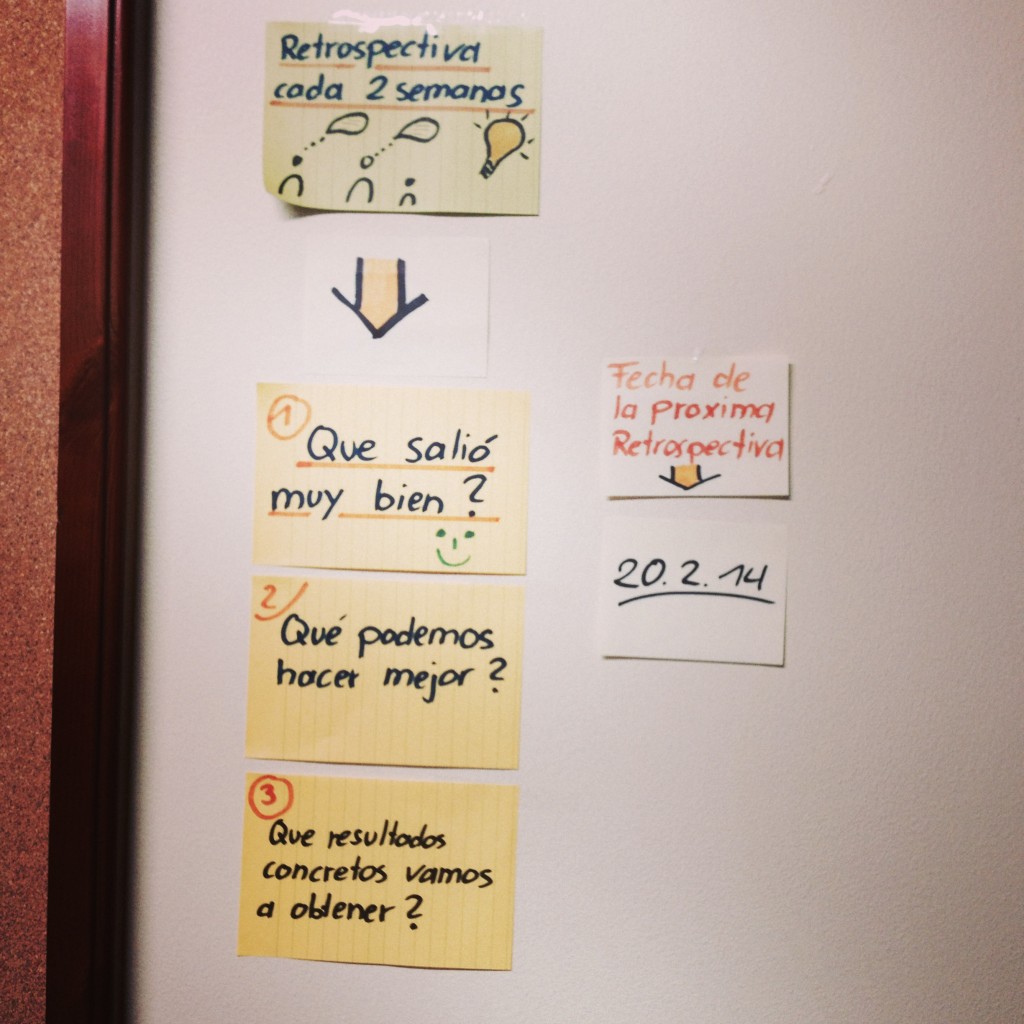 Retrospectiva
cada 2 semanas
1
Que salió
muy bien?
2
Qué podemos
hacer mejor?
3
Que resultados
concretos vamos
a obtener?
Fecha de
la proxima
Retrospectiva
20.2.14